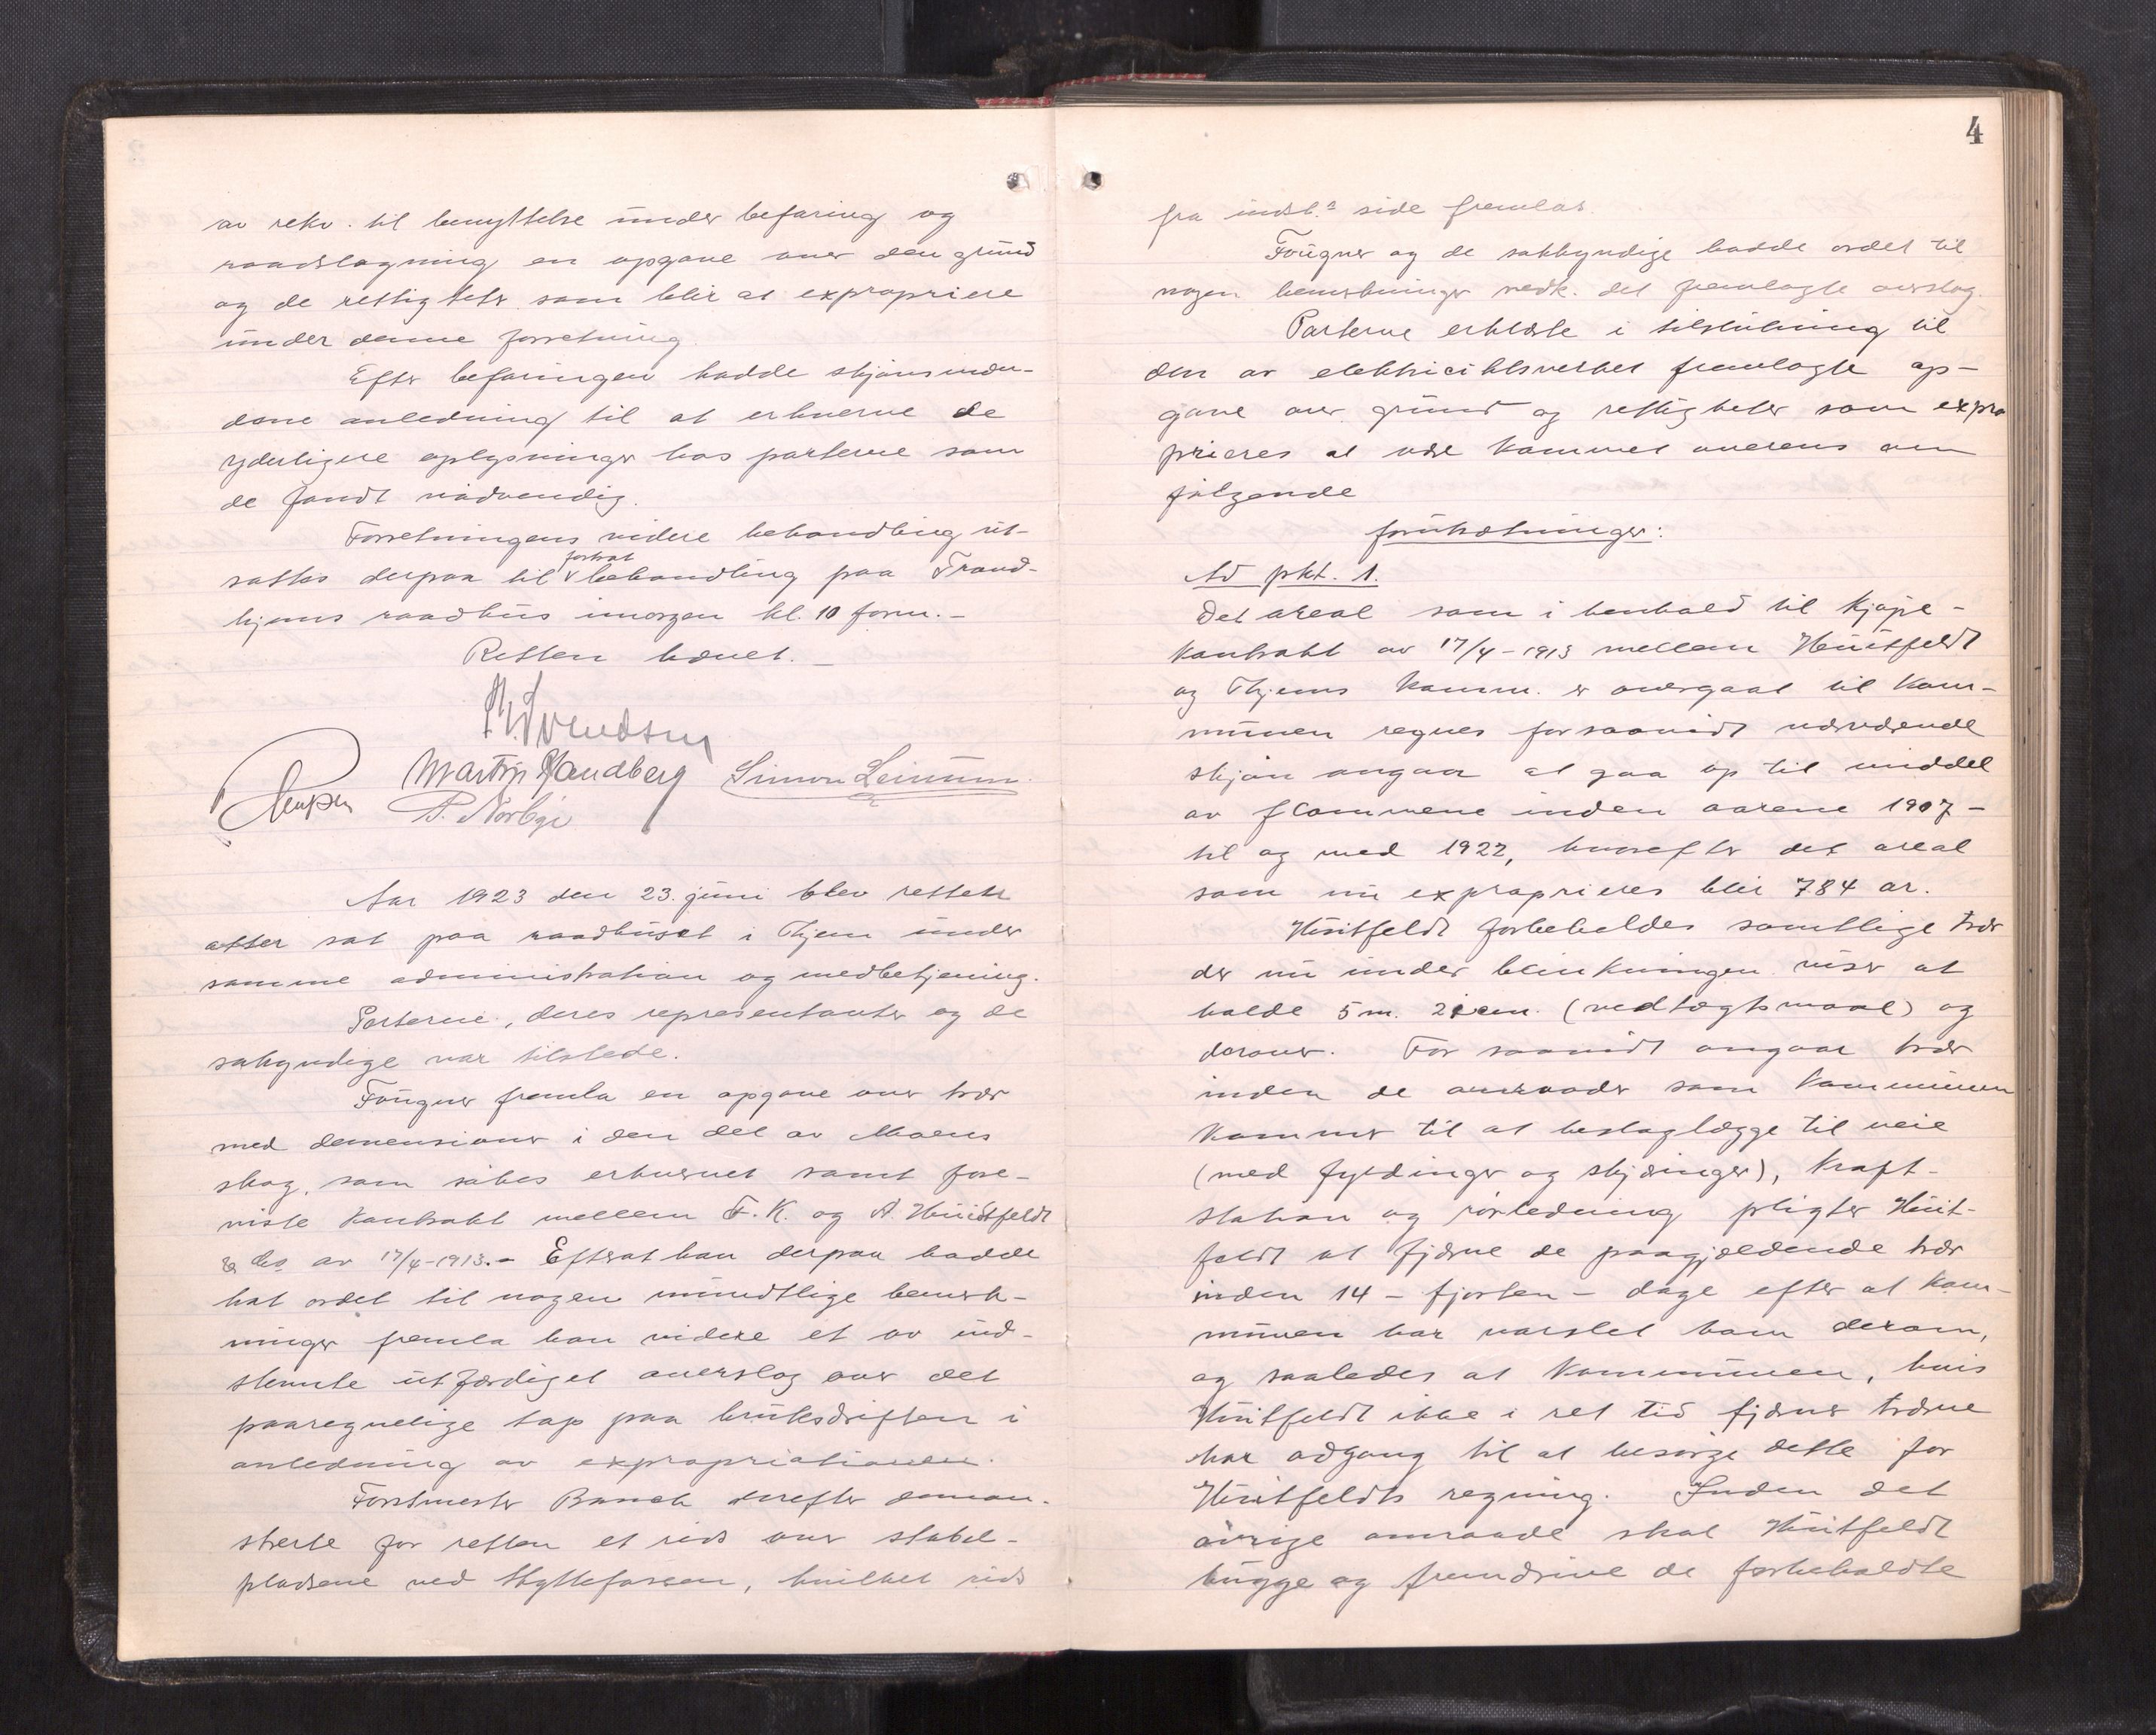 av rekv. til benyttelse under befaring og
raadslagning en opgave over den grund
og de rettigheter som blir at expropriere
under denne forretning.
Efter befaringen hadde skjønsmæn-
dene anledning til at erhverve de
yderligere oplysninger hos parterne som
de fandt nødvendig.
Forretningens videre behandling ut-
sattes derpaa til fortsat behandling paa Trond-
hjems raadhus imorgen kl. 10 form. -
Retten hævet. -
Svendsen
Martin Sandberg Simon Leinum
P. Norbye
Aar 1923 den 23. juni blev retten
atter sat paa raadhuset i Thjem under
samme administration og medbetjening.
Parterne, deres representanter og de
sakyndige var tilstede.
Fougner fremla en opgave over trær
med demensioner i den del av Moens
skog, som søkes erhvervet samt fore-
viste kontrakt mellem T. K. og A. Huitfeldt
& Co av 17/4-1913. - Efterat han derpaa hadde
hat ordet til nogen mundtlige bemerk-
ninger fremla han videre et av ind-
stevnte utfærdiget overslag over det
paaregnelige tap paa bruksdriften i
anledning av expropriationen.
Forstmester Banck derefter demon-
sterte for retten et rids over stabel-
pladsene ved Hyttefossen, hvilket rids
4
fra indst.s side fremlaes.
Fougner og de sakkyndige hadde ordet til
nogen bemerkninger vedk. det fremlagte overslag.
Parterne erklærte i tilslutning til
den av elektricitetsverket fremlagte op-
gave over grund og rettigheter som expro
prieres at være kommet overens om
følgende
forutsætninger:
Ad pkt. 1.
Det areal som i henhold til kjøpe-
kontrakt av 17/4-1913 mellem Huitfeldt
og Thjems komm. er overgaat til kom-
munen regnes forsaavidt nærværende
skjøn angaar at gaa op til middel
av flommene inden aarene 1907 -
til og med 1922, hvorefter det areal
som nu exproprieres blir 784 ar.
Huitfeldt forbeholdes samtlige trær
der nu under blinkningen viser at
holde 5 m. 21 cm. (vedtægtsmaal) og
derover. For saavidt angaar trær
inden de omraader som kommunen
kommer til at beslaglægge til veie
(med fyldinger og skjæringer), kraft-
station og rørledning pligter Huit-
feldt at fjerne de paagjældende trær
inden 14 - fjorten - dage efter at kom-
munen har varslet ham derom,
og saaledes at kommunen, hvis
Huitfeldt ikke i ret tid fjerner trærne
har adgang til at besørge dette for
Huitfeldts regning. Inden det
øvrige omraade skal Huitfeldt
hugge og fremdrive de forbeholdte